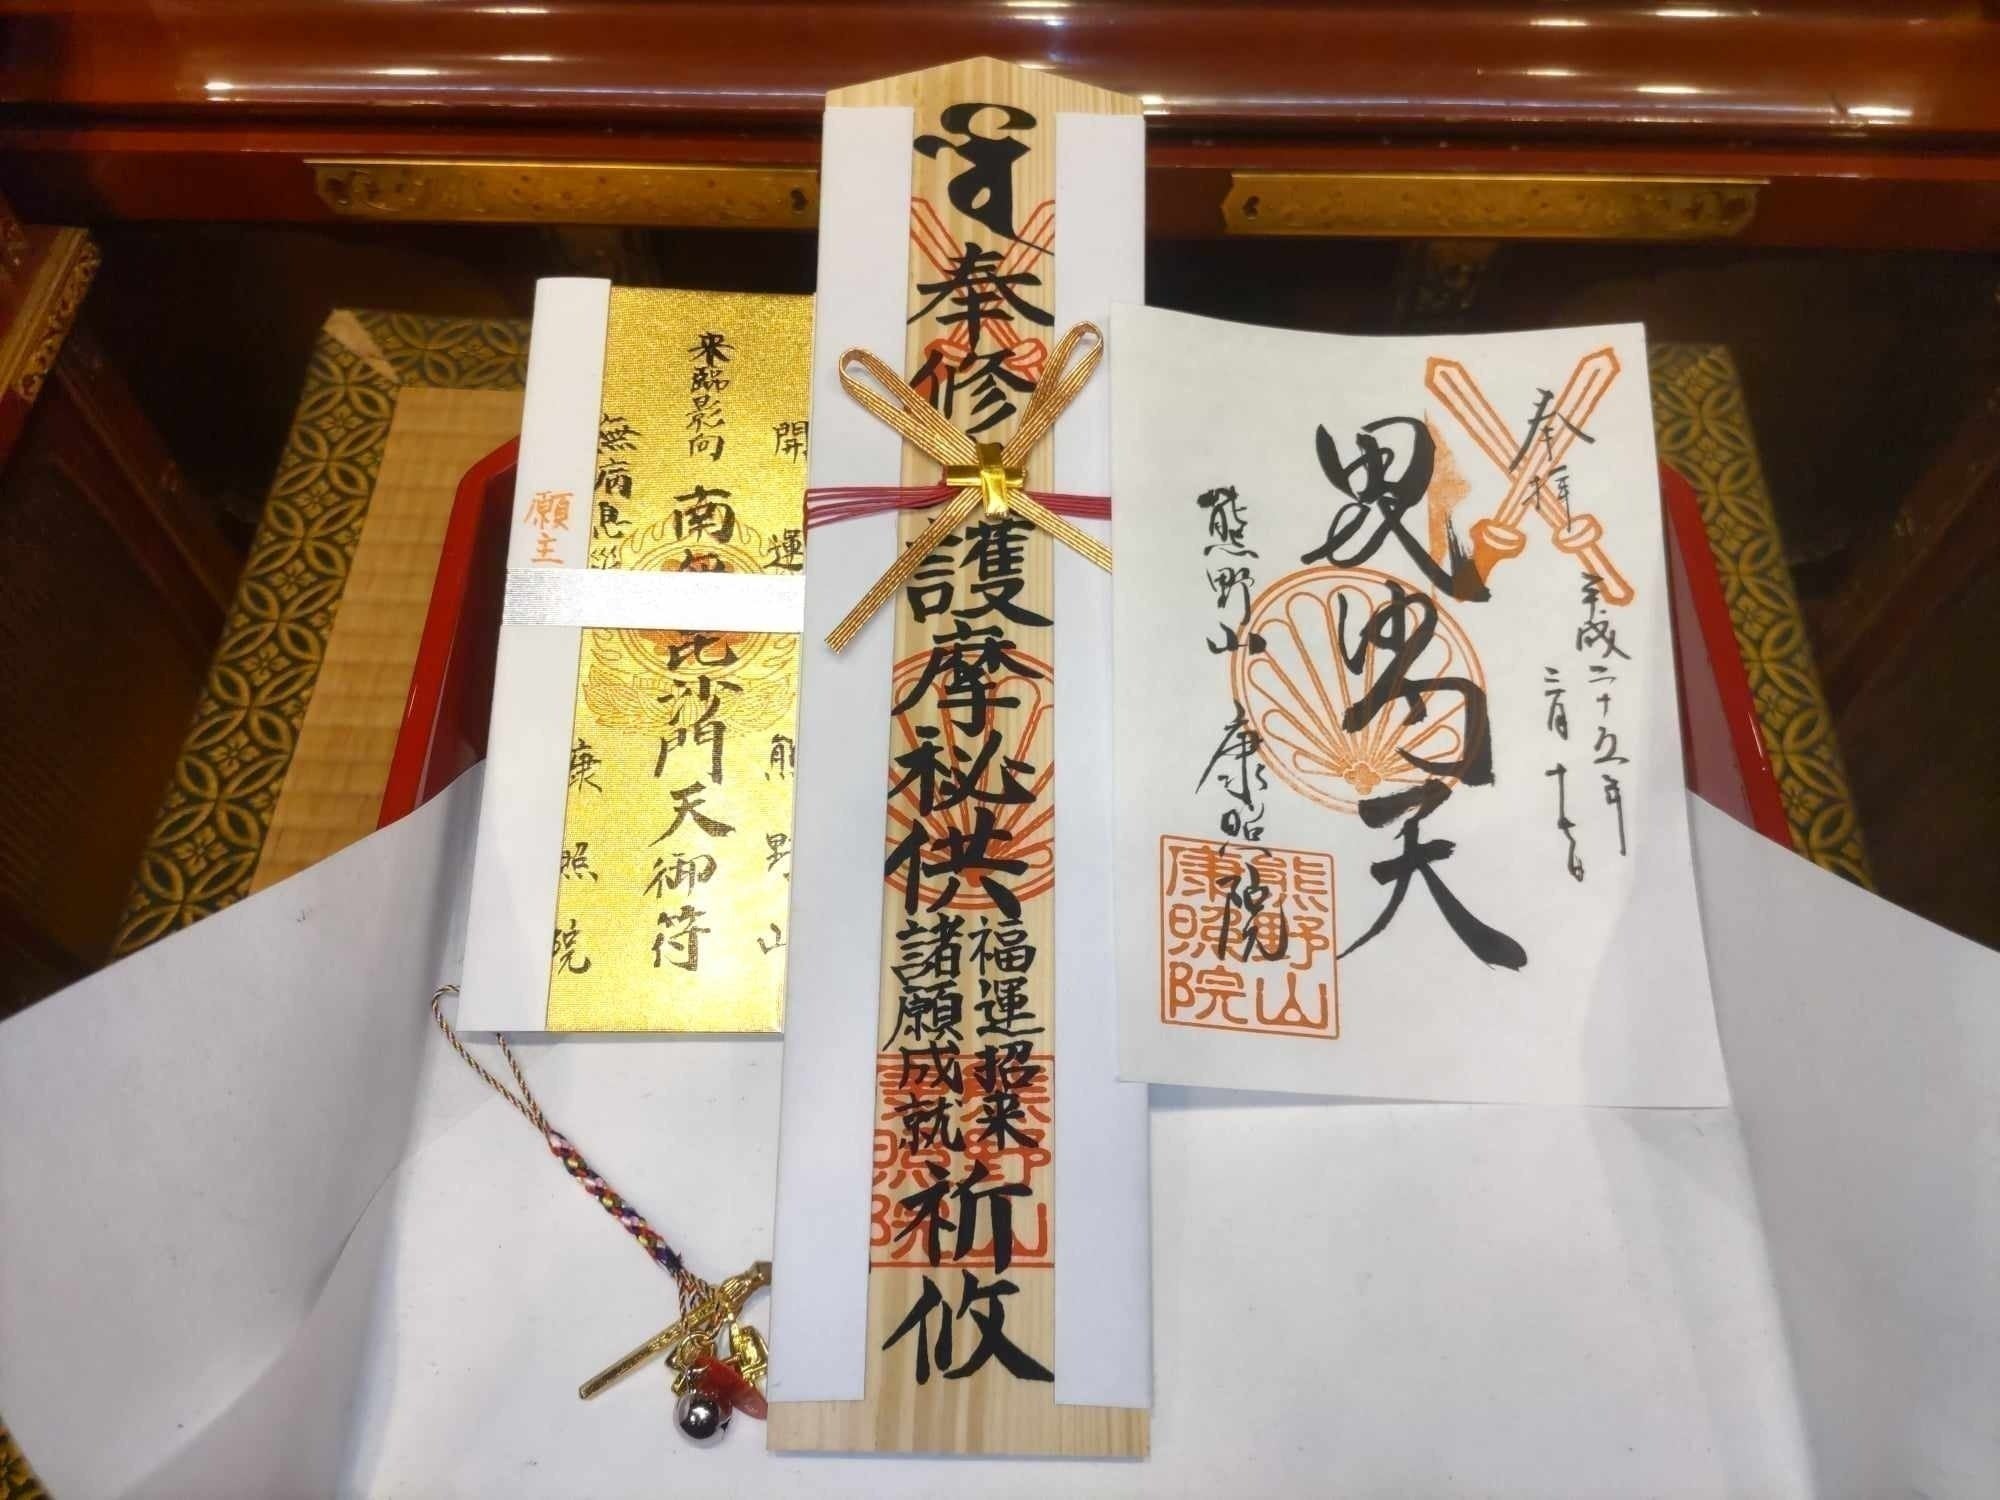 奉拝
平成二十五年
二月十七日
毘沙門天
熊野山 康照院
熊野山
康照院
奉修
護摩秘供
福運招来
諸願成就
祈攸
熊野山
照院
開運
熊野山
来臨影向
南無毘沙門天御符
無病息災
康照院
願主